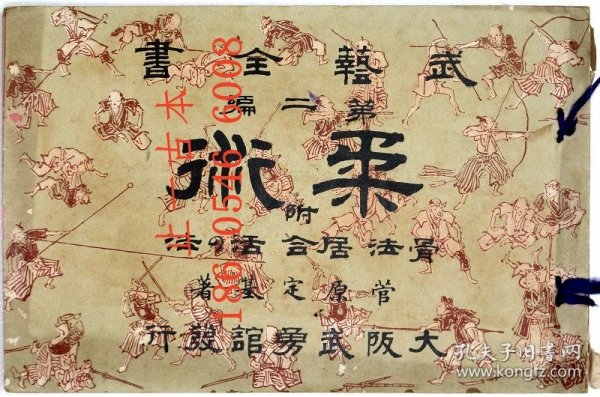 武藝全書
第二編
柔術
附
骨法居合活の法
菅原定基著
大阪武勇館發行
孔夫子旧书网
www.kongfz.com